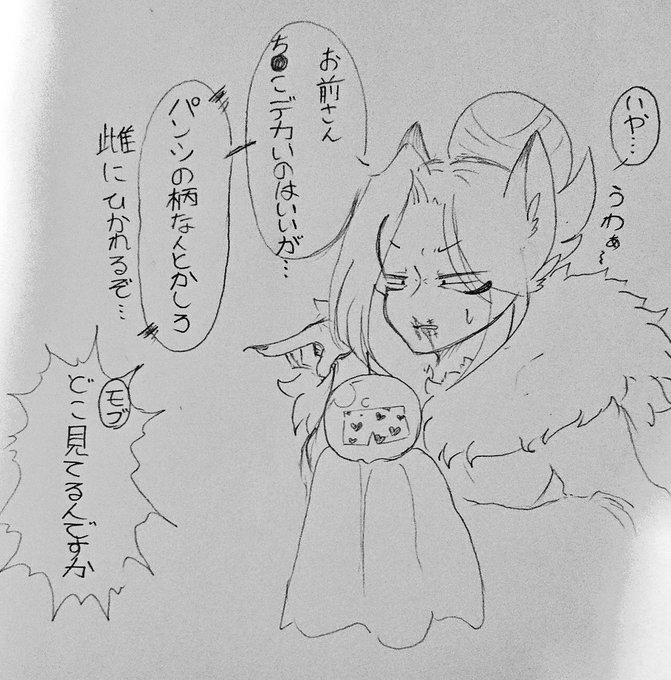 いや…
うわぁ
お前さん
ち●こデカいのはいいが…
パンツの柄なんとかしろ
雌にひかれるぞ…
モブ
どこ見てるんですか